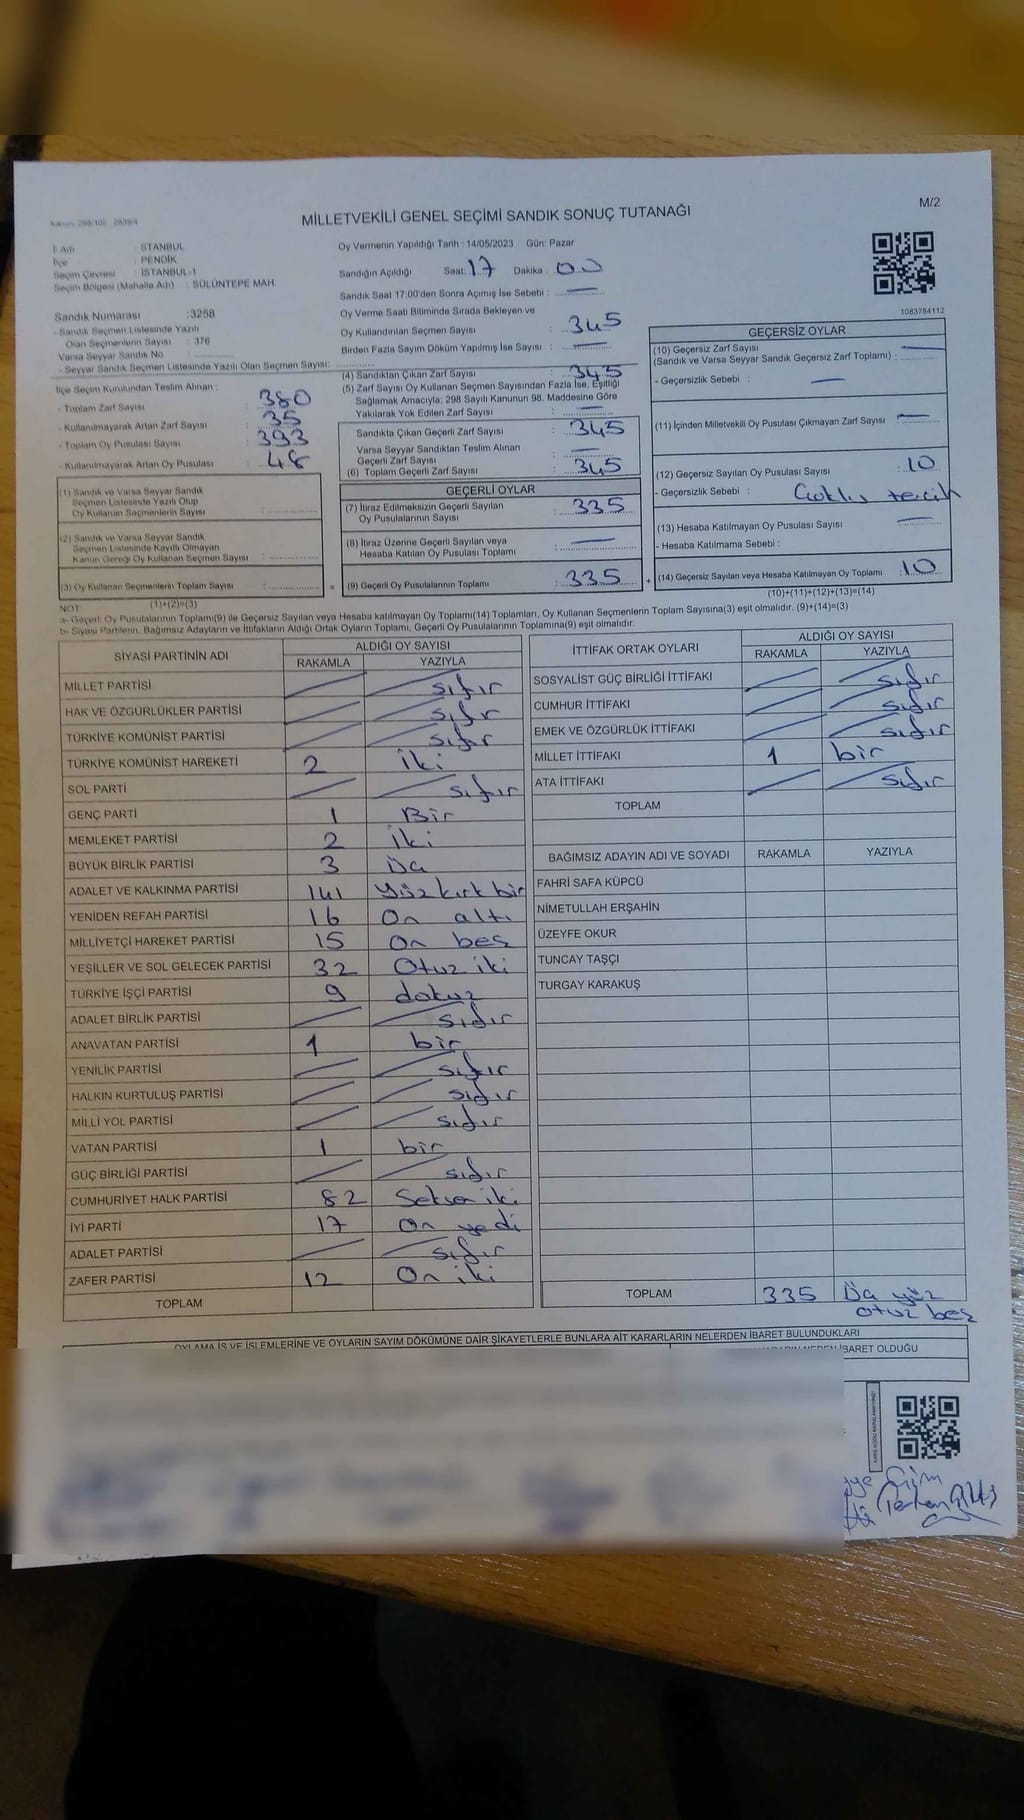 MİLLETVEKİLİ GENEL SEÇİMİ SANDIK SONUÇ TUTANAĞI
M/2
İl Adı : İSTANBUL
İlçe : PENDİK
Seçim Çevresi : İSTANBUL-1
Seçim Bölgesi (Mahalle Adı) : SÜLÜNTEPE MAH.
Sandık Numarası :3258
- Sandık Seçmen Listesinde Yazılı
Olan Seçmenlerin Sayısı : 376
Varsa Seyyar Sandık No :
- Seyyar Sandık Seçmen Listesinde Yazılı Olan Seçmen Sayısı:
İlçe Seçim Kurulundan Teslim Alınan :
- Toplam Zarf Sayısı : 380
- Kullanılmayarak Artan Zarf Sayısı : 35
- Toplam Oy Pusulası Sayısı : 393
- Kullanılmayarak Artan Oy Pusulası : 48
(1) Sandık ve Varsa Seyyar Sandık
Seçmen Listesinde Yazılı Olup
Oy Kullanan Seçmenlerin Sayısı :
(2) Sandık ve Varsa Seyyar Sandık
Seçmen Listesinde Kayıtlı Olmayan
Kanun Gereği Oy Kullanan Seçmen Sayısı :
(3) Oy Kullanan Seçmenlerin Toplam Sayısı :
(1)+(2)=(3)
Oy Vermenin Yapıldığı Tarih : 14/05/2023 Gün: Pazar
Sandığın Açıldığı Saat: 17 Dakika : 00
Sandık Saat 17:00'den Sonra Açmış İse Sebebi : —
Oy Verme Saati Bitiminde Sırada Bekleyen ve
Oy Kullandırılan Seçmen Sayısı : 345
Birden Fazla Sayım Döküm Yapılmış İse Sayısı : —
(4) Sandıktan Çıkan Zarf Sayısı : 345
(5) Zarf Sayısı Oy Kullanan Seçmen Sayısından Fazla İse, Eşitliği
Sağlamak Amacıyla; 298 Sayılı Kanunun 98. Maddesine Göre
Yakılarak Yok Edilen Zarf Sayısı : —
Sandıkta Çıkan Geçerli Zarf Sayısı : 345
Varsa Seyyar Sandıktan Teslim Alınan
Geçerli Zarf Sayısı : —
(6) Toplam Geçerli Zarf Sayısı : 345
GEÇERLİ OYLAR
(7) İtiraz Edilmeksizin Geçerli Sayılan
Oy Pusulalarının Sayısı : 335
(8) İtiraz Üzerine Geçerli Sayılan veya
Hesaba Katılan Oy Pusulası Toplamı : —
= (9) Geçerli Oy Pusulalarının Toplamı : 335 +
1083784112
GEÇERSİZ OYLAR
(10) Geçersiz Zarf Sayısı —
(Sandık ve Varsa Seyyar Sandık Geçersiz Zarf Toplamı) :
- Geçersizlik Sebebi : —
(11) İçinden Milletvekili Oy Pusulası Çıkmayan Zarf Sayısı —
(12) Geçersiz Sayılan Oy Pusulası Sayısı 10
- Geçersizlik Sebebi : Çoklu tercih
(13) Hesaba Katılmayan Oy Pusulası Sayısı —
- Hesaba Katılmama Sebebi :
(14) Geçersiz Sayılan veya Hesaba Katılmayan Oy Toplamı 10
(10)+(11)+(12)+(13)=(14)
NOT:
a- Geçerli Oy Pusulalarının Toplamı(9) ile Geçersiz Sayılan veya Hesaba katılmayan Oy Toplamı(14) Toplamları, Oy Kullanan Seçmenlerin Toplam Sayısına(3) eşit olmalıdır. (9)+(14)=(3)
b- Siyasi Partilerin, Bağımsız Adayların ve İttifakların Aldığı Ortak Oyların Toplamı, Geçerli Oy Pusulalarının Toplamına(9) eşit olmalıdır.
SİYASİ PARTİNİN ADI ALDIĞI OY SAYISI
RAKAMLA YAZIYLA
MİLLET PARTİSİ sıfır
HAK VE ÖZGÜRLÜKLER PARTİSİ sıfır
TÜRKİYE KOMÜNİST PARTİSİ sıfır
TÜRKİYE KOMÜNİST HAREKETİ 2 iki
SOL PARTİ sıfır
GENÇ PARTİ 1 Bir
MEMLEKET PARTİSİ 2 iki
BÜYÜK BİRLİK PARTİSİ 3 Üç
ADALET VE KALKINMA PARTİSİ 141 Yüz kırk bir
YENİDEN REFAH PARTİSİ 16 On altı
MİLLİYETÇİ HAREKET PARTİSİ 15 On beş
YEŞİLLER VE SOL GELECEK PARTİSİ 32 Otuz iki
TÜRKİYE İŞÇİ PARTİSİ 9 dokuz
ADALET BİRLİK PARTİSİ sıfır
ANAVATAN PARTİSİ 1 bir
YENİLİK PARTİSİ sıfır
HALKIN KURTULUŞ PARTİSİ sıfır
MİLLİ YOL PARTİSİ sıfır
VATAN PARTİSİ 1 bir
GÜÇ BİRLİĞİ PARTİSİ sıfır
CUMHURİYET HALK PARTİSİ 82 Seksen iki
İYİ PARTİ 17 On yedi
ADALET PARTİSİ sıfır
ZAFER PARTİSİ 12 On iki
TOPLAM
İTTİFAK ORTAK OYLARI ALDIĞI OY SAYISI
RAKAMLA YAZIYLA
SOSYALİST GÜÇ BİRLİĞİ İTTİFAKI sıfır
CUMHUR İTTİFAKI sıfır
EMEK VE ÖZGÜRLÜK İTTİFAKI sıfır
MİLLET İTTİFAKI 1 bir
ATA İTTİFAKI sıfır
TOPLAM
BAĞIMSIZ ADAYIN ADI VE SOYADI RAKAMLA YAZIYLA
FAHRİ SAFA KÜPCÜ
NİMETULLAH ERŞAHİN
ÜZEYFE OKUR
TUNCAY TAŞÇI
TURGAY KARAKUŞ
TOPLAM 335 Üç yüz
otuz beş
OYLAMA İŞ VE İŞLEMLERİNE VE OYLARIN SAYIM DÖKÜMÜNE DAİR ŞİKAYETLERLE BUNLARA AİT KARARLARIN NELERDEN İBARET BULUNDUKLARI
İBARET OLDUĞU